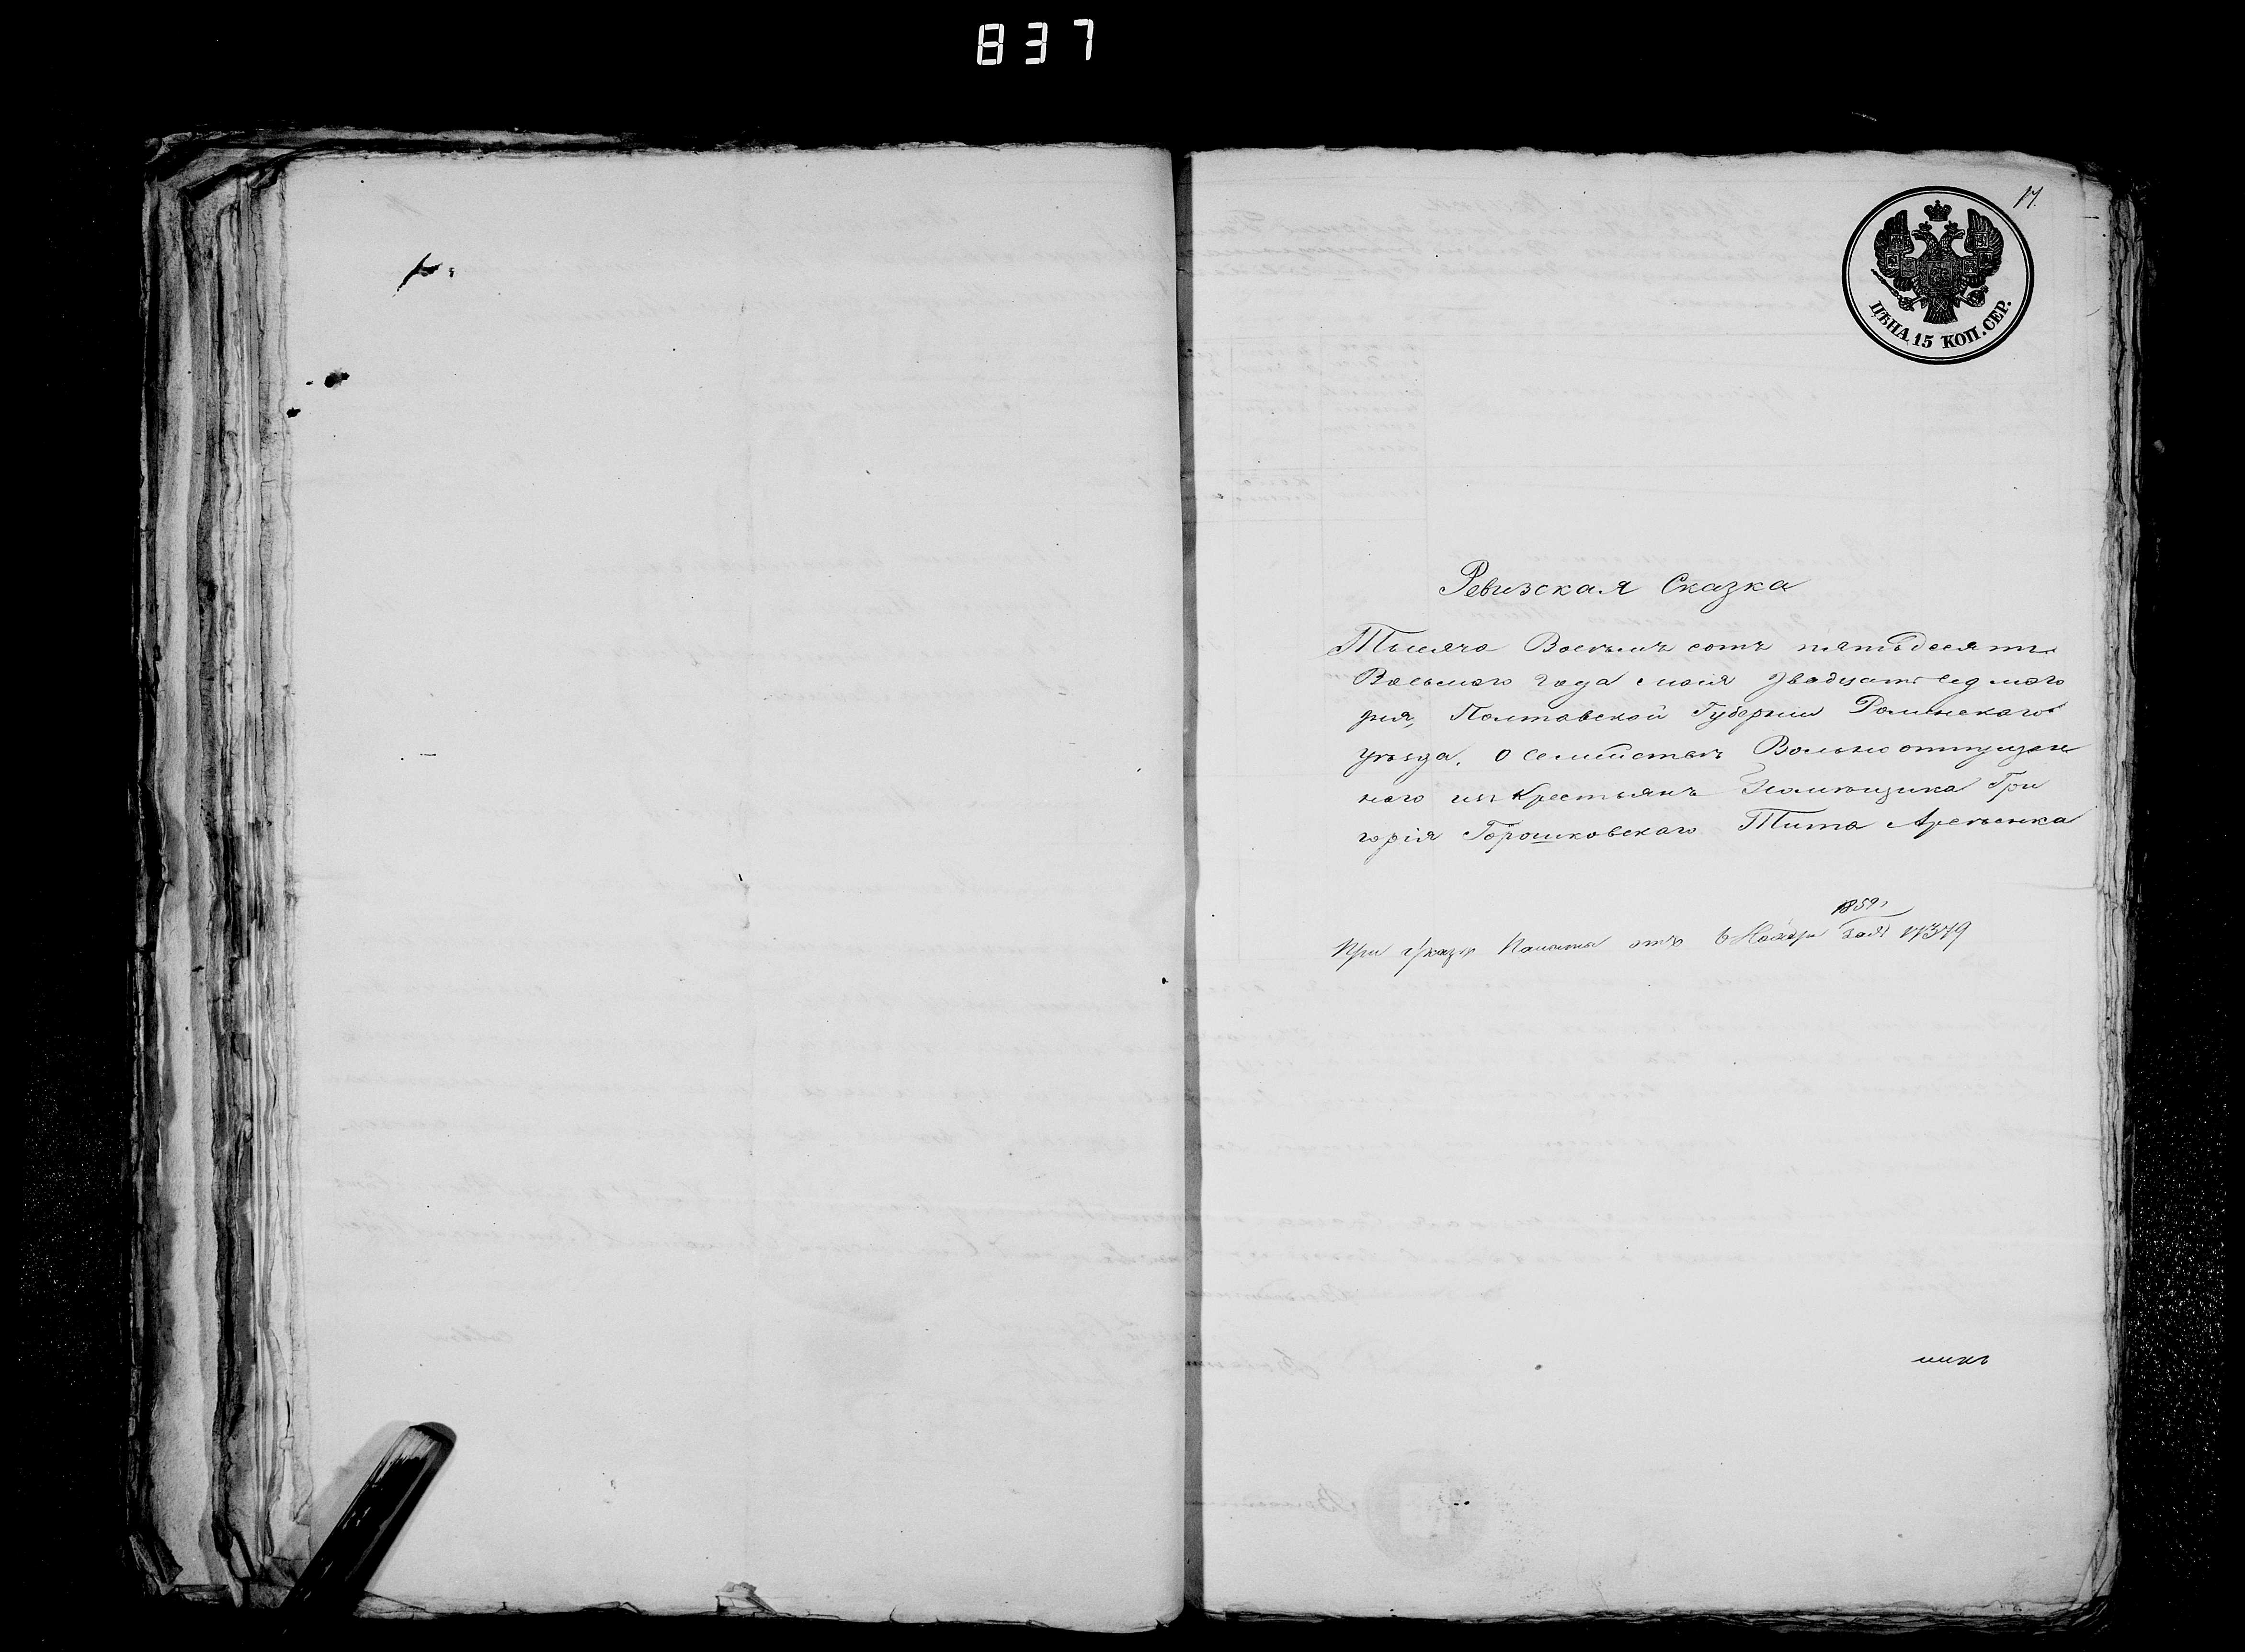 837
17.
ЦѢНА 15 КОП. СЕР.
Ревизская Сказка
Тысяча Восемь сотъ пятьдесятъ
Восьмого года маія двадцать седмого
дня, Полтавской Губерніи Роменскаго
уѣзда. О семействѣ Вольноотпущен
ного изъ Крестьянъ Помѣщика Гри
горія Горошковскаго Тита
1859,
При Указѣ Палаты отъ 6 Ноября года №